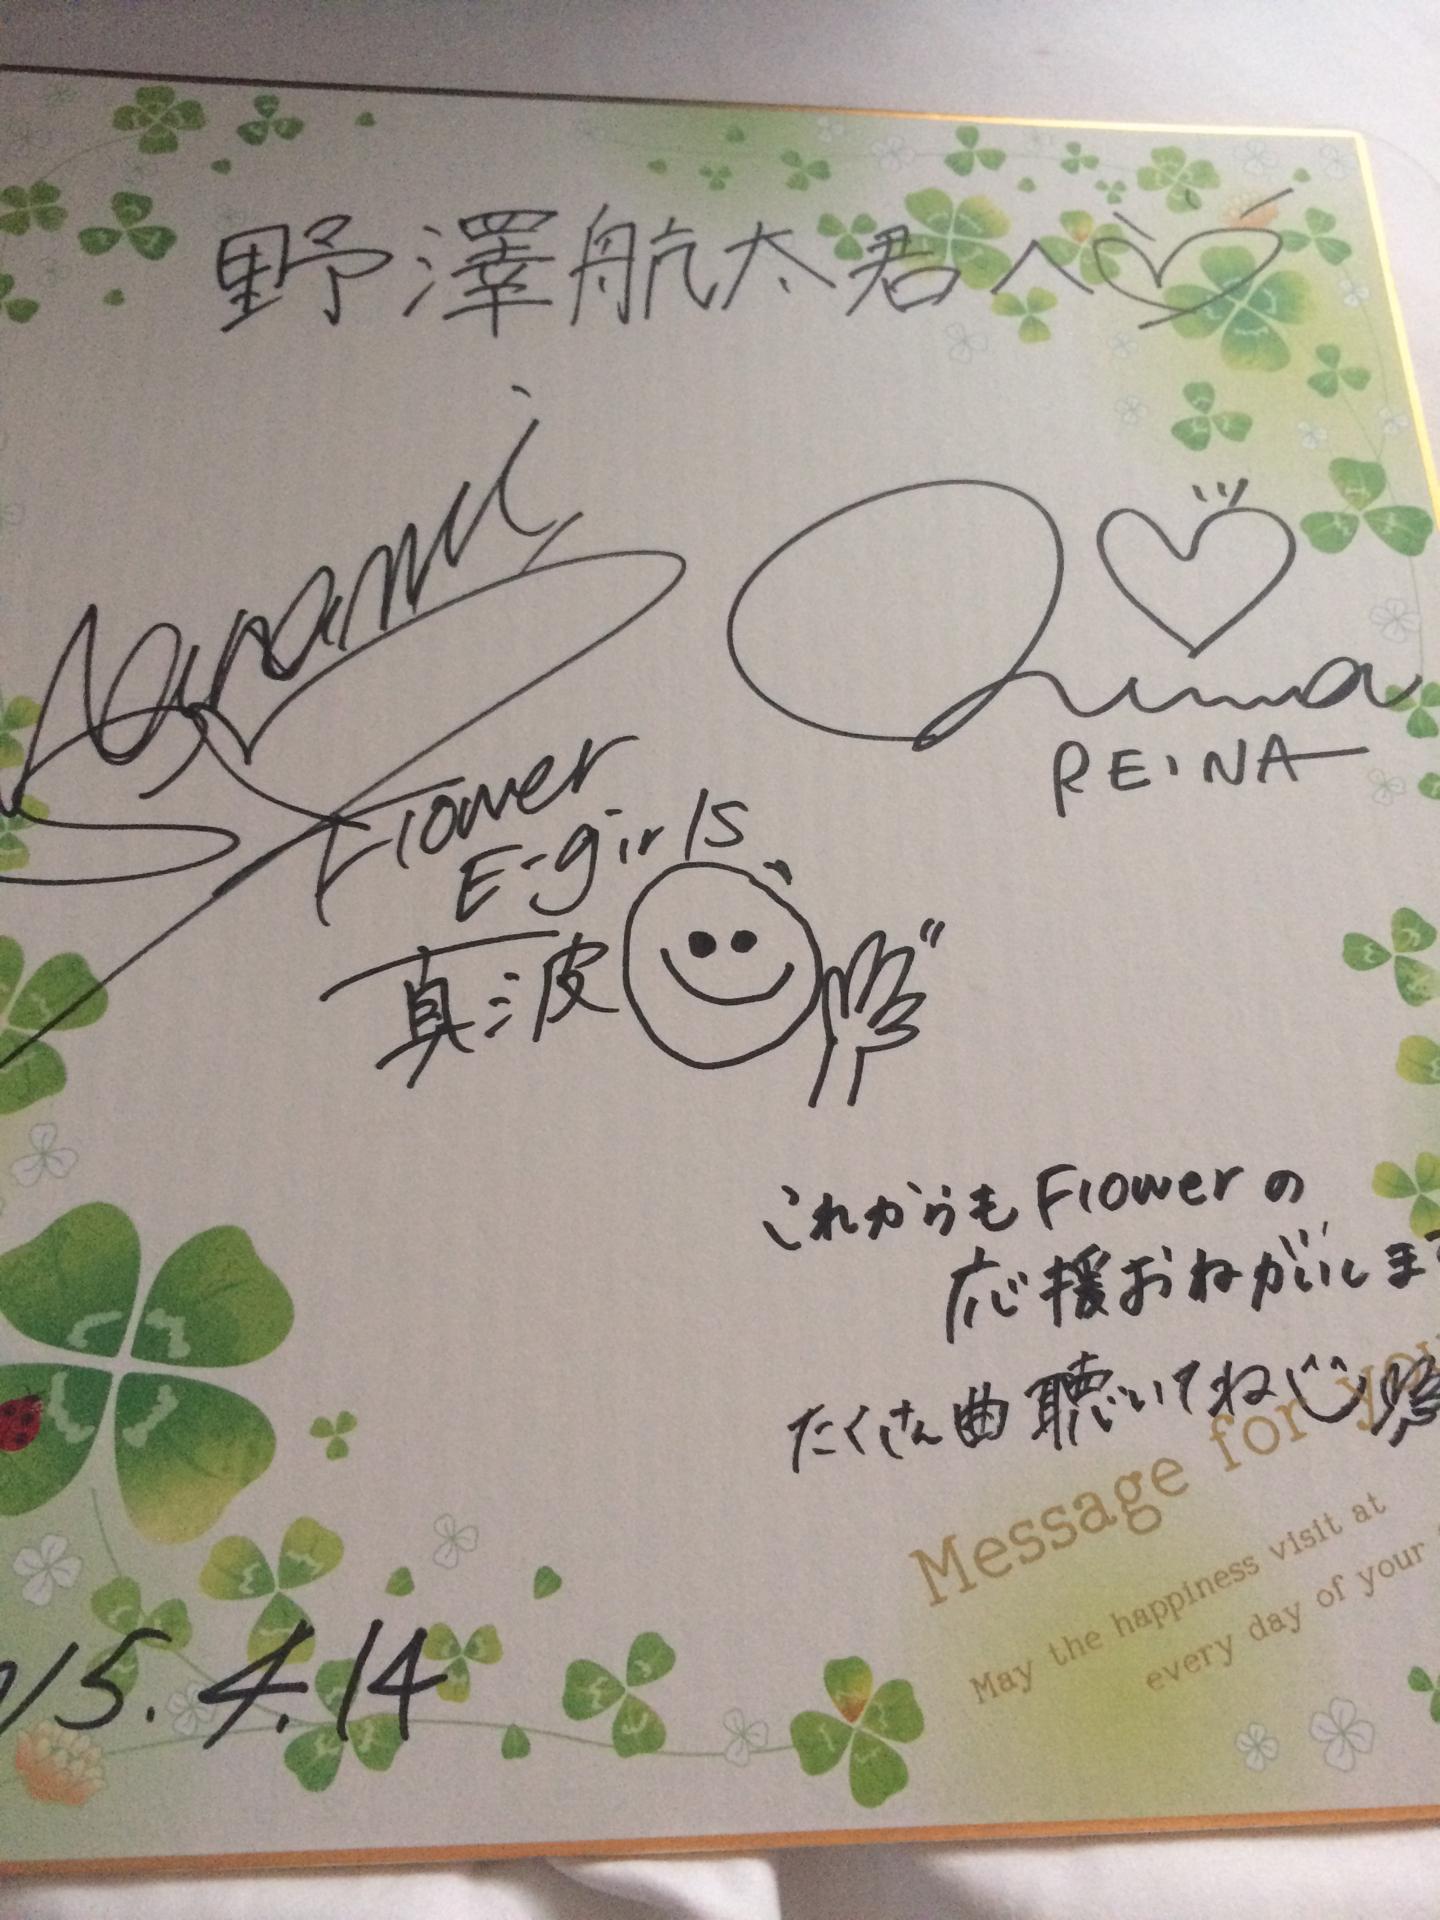 野澤航太君へ
REINA
Flower
E-girls
真波
これからもFlowerの
応援おねがいしま
たくさん曲聴いてね
Message for you
May the happiness visit at
every day of your
15.4.14